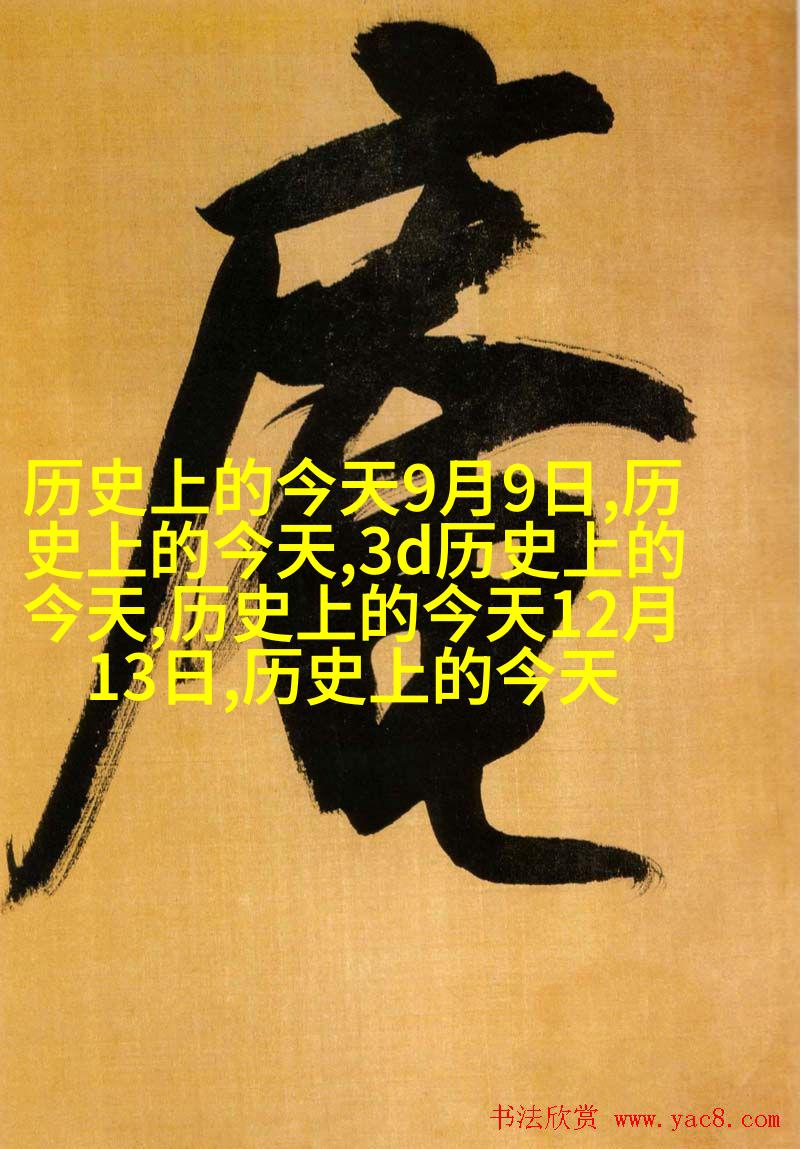 庵
历史上的今天9月9日,历
史上的今天,3d历史上的
今天,历史上的今天12月
13日,历史上的今天
书法欣赏 www.yac8.com